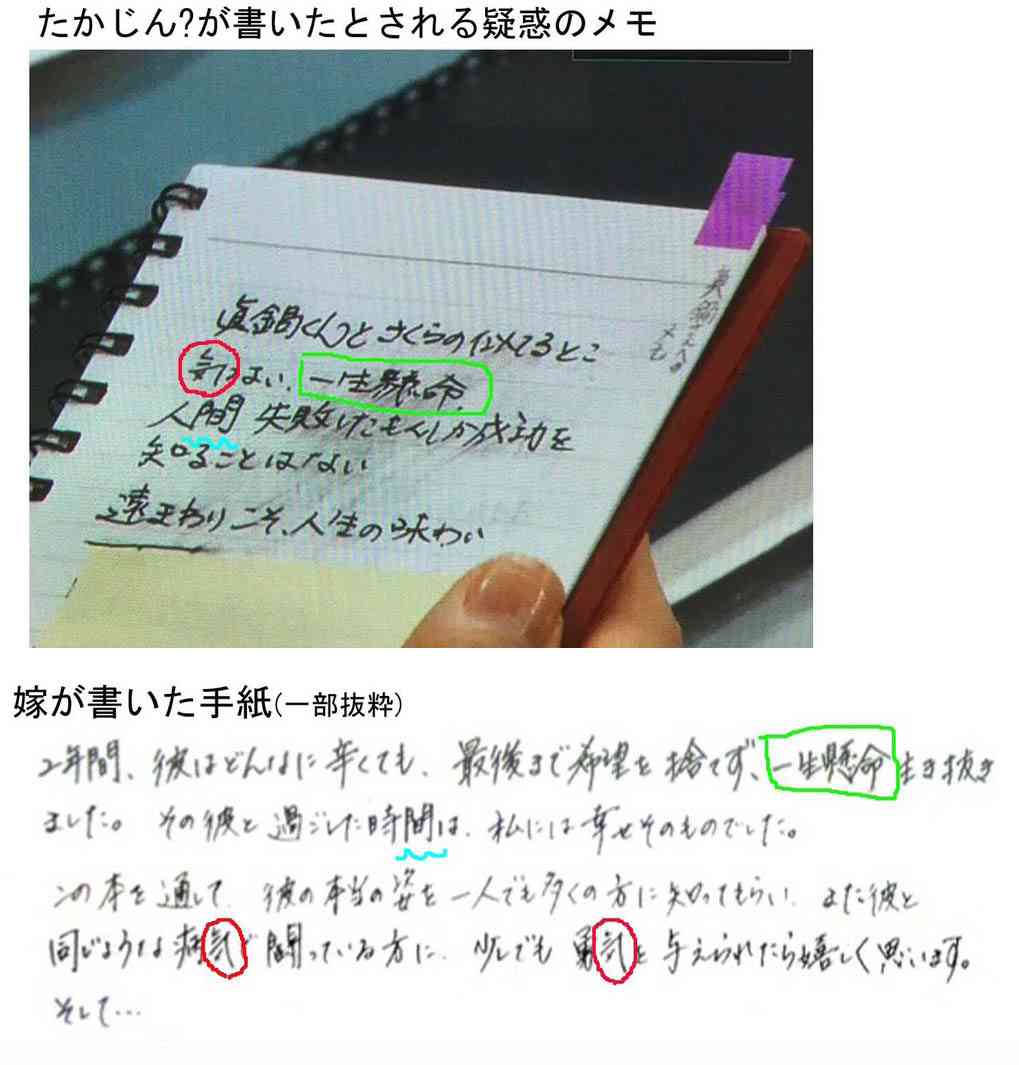 たかじん?が書いたとされる疑惑のメモ
眞鍋くんとさくらの似てるとこ
気ぃない、一生懸命。
人間 失敗したもんしか成功を
知ることはない
遠まわりこそ、人生の味わい
眞鍋さんへの
メモ
嫁が書いた手紙(一部抜粋)
2年間、彼はどんなに辛くても、最後まで希望を捨てず、一生懸命生き抜き
ました。その彼と過ごした時間は、私には幸せそのものでした。
この本を通して、彼の本当の姿を一人でも多くの方に知ってもらい、また彼と
同じような病気で闘っている方に、少しでも勇気を与えられたら嬉しく思います。
そして…